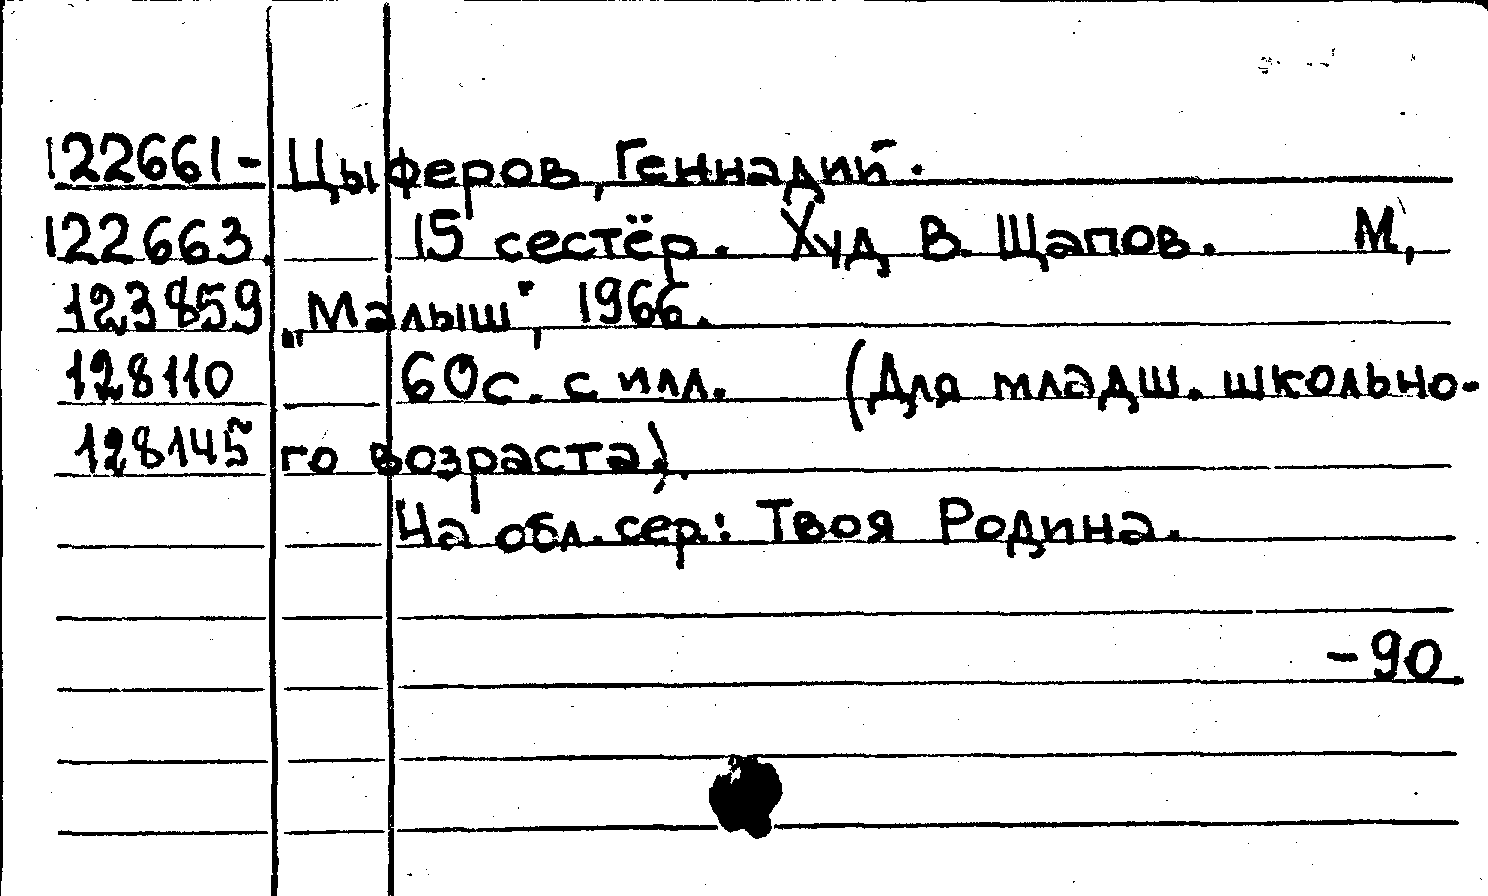 122661- Цыферов, Геннадий.
122663. 15 сестёр. Худ В. Щапов. М,
123859 „Малыш", 1966.
128110 60с. с илл. (Для младш. школьно-
128145 го возраста).
На обл. сер.: Твоя Родина.
-90